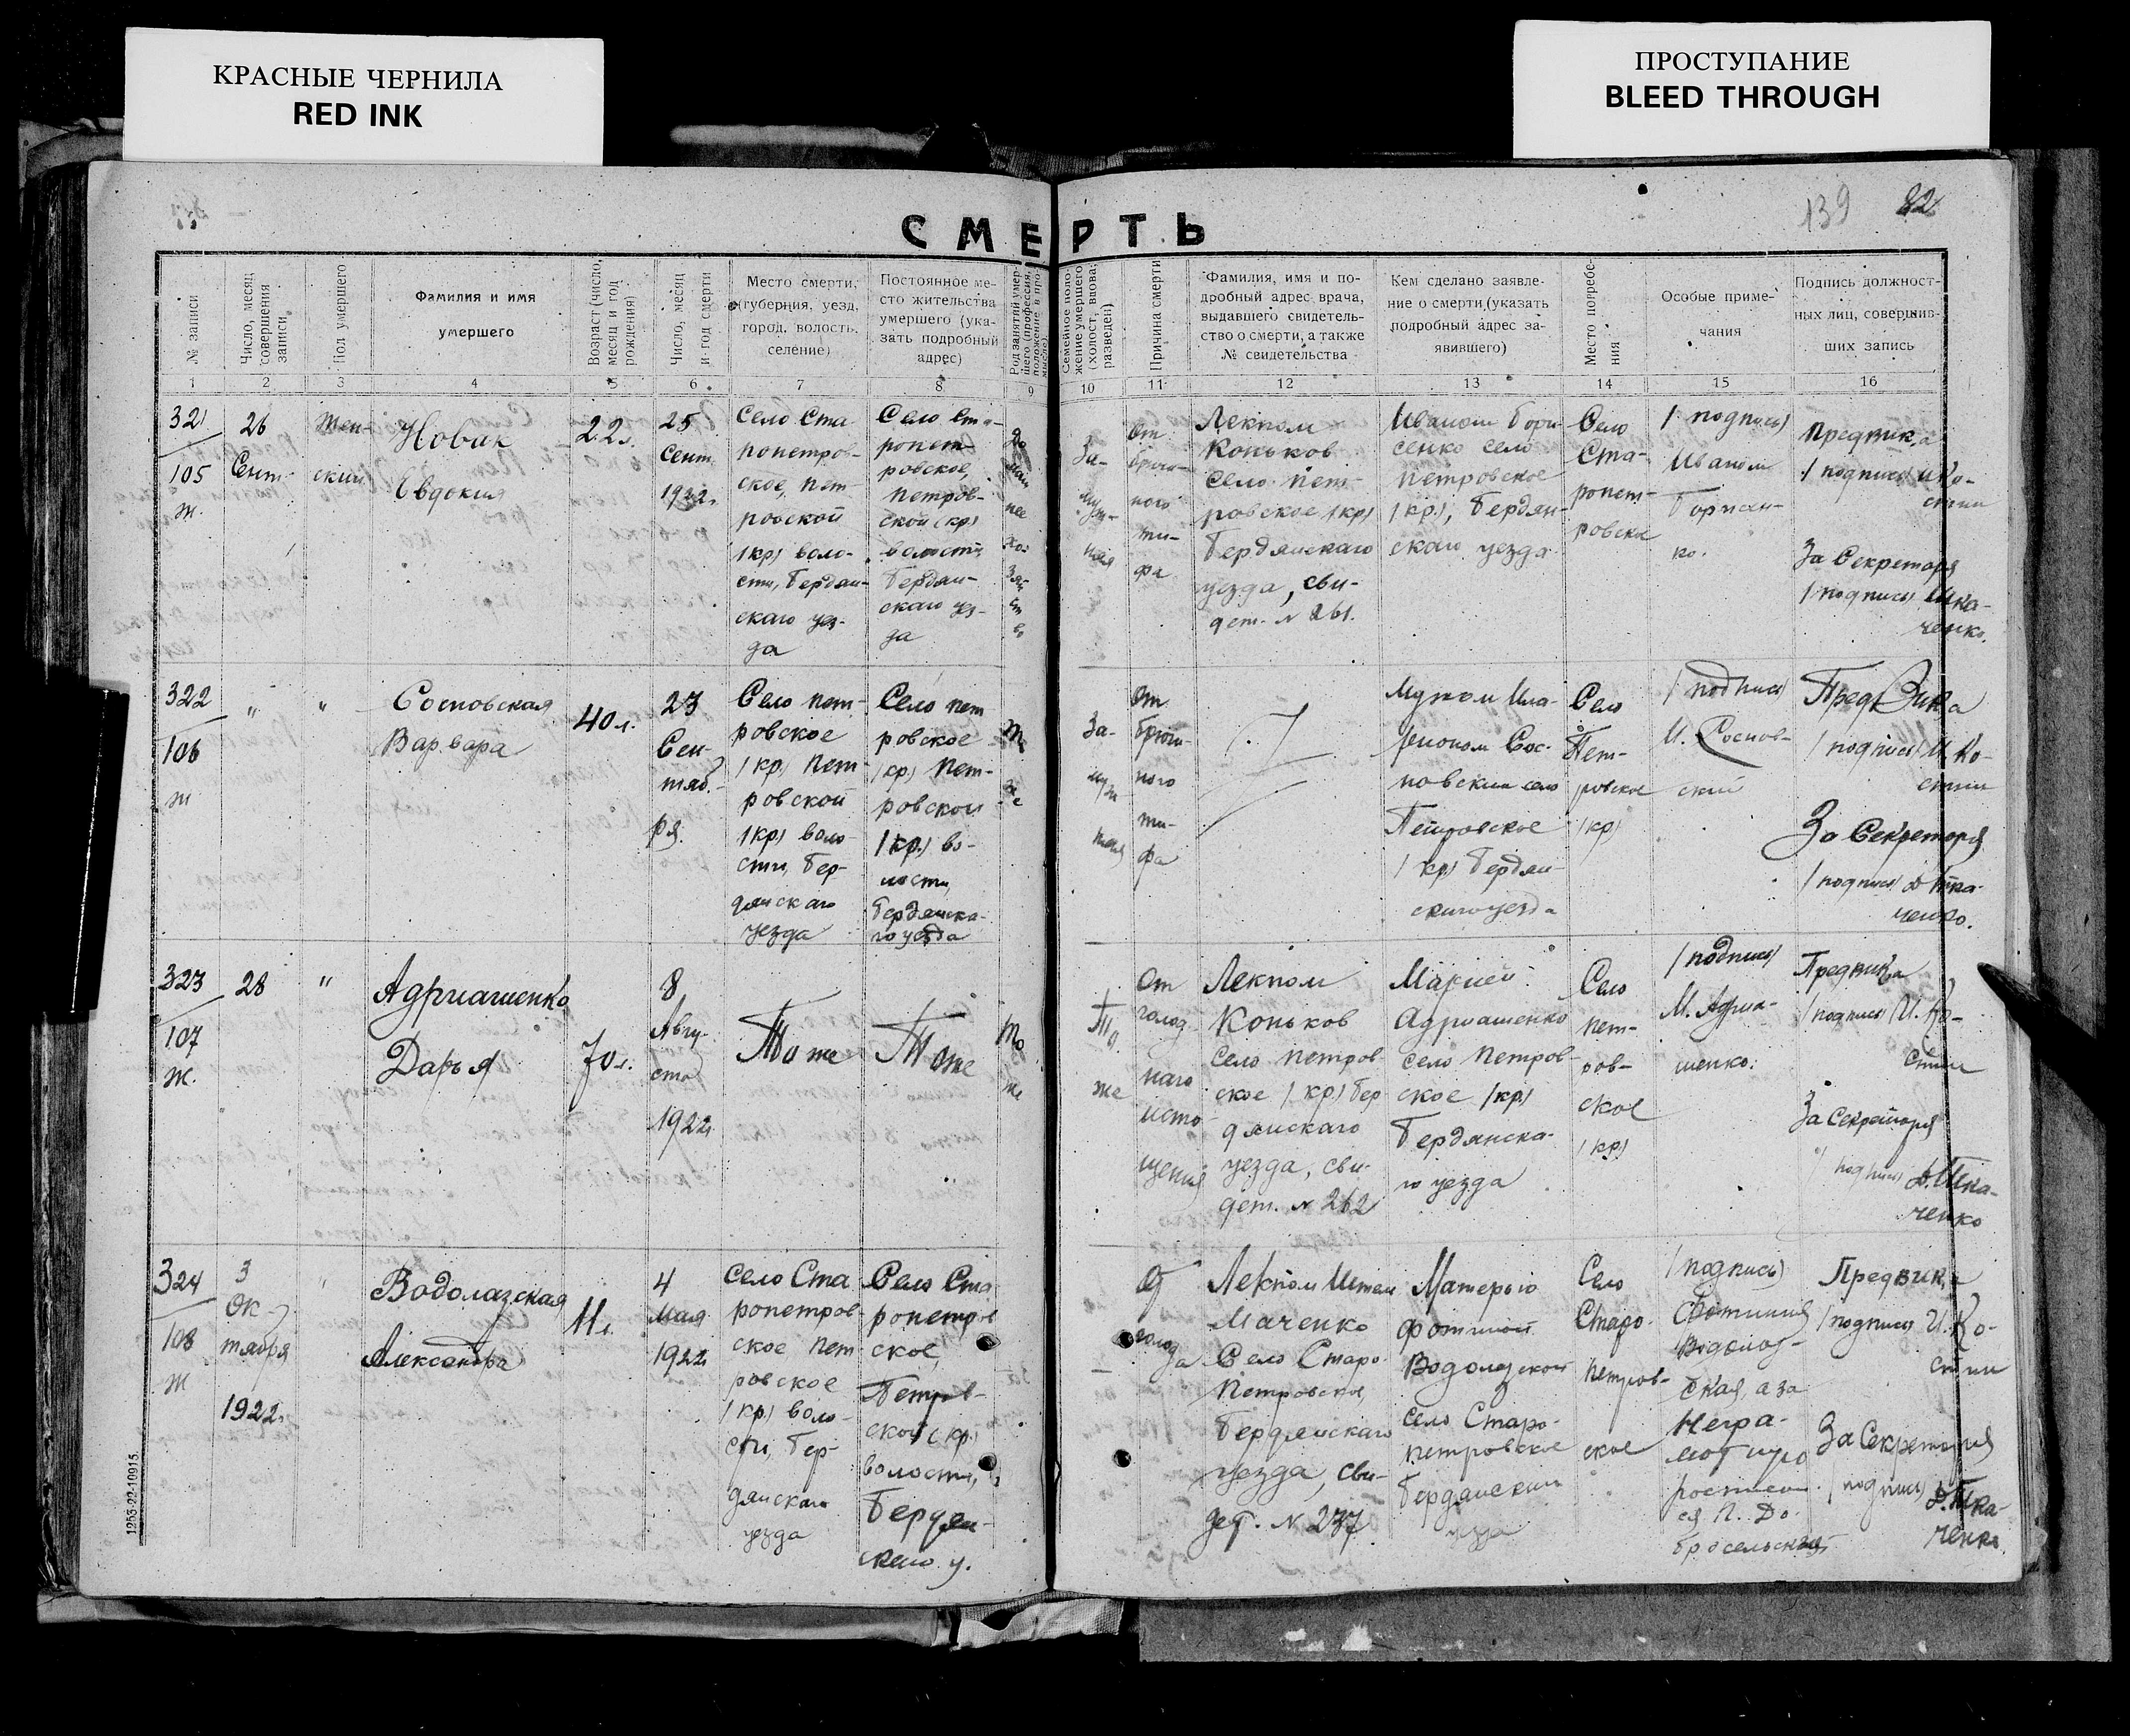 КРАСНЫЕ ЧЕРНИЛА
RED INK
ПРОСТУПАНИЕ
BLEED THROUGH
139 82
СМЕРТЬ
№ записи
Число, месяц
совершения
записи
Пол умершего
Фамилия и имя
умершего
Возраст (число,
месяц и год
рождения)
Число, месяц
и год смерти
Место смерти,
(губерния, уезд,
город, волость,
селение)
Постоянное ме-
сто жительства
умершего (ука-
зать подробный
адрес)
Род занятий умер-
шего (профессия,
положение в про-
мысле)
Семейное поло-
жение умершего
(холост, вдова,
разведен)
Причина смерти
Фамилия, имя и по-
дробный адрес врача,
выдавшего свидетель-
ство о смерти, а также
№ свидетельства
Кем сделано заявле-
ние о смерти (указать
подробный адрес за-
явившего)
Место погребе-
ния
Особые приме-
чания
Подпись должност-
ных лиц, совершив-
ших запись
1 2 3 4 5 6 7 8 9 10 11 12 13 14 15 16
321
105
ж.
26
Сент.
Жен-
ский
Новик
Евдокия
22 л.
25
Сент.
1922 г.
Село Ста
ропетров-
ское, Пет-
ровской
/кр/ воло-
сти, Бердян-
скаго уез-
да
Село Ста-
ропет-
ровское,
Петров-
ской (кр)
волости
Бердян-
скаго уез-
да
До
маш
нее
хо-
зяй
ст
во
За-
муж-
няя
От
брюш-
ного
ти-
фа
Лекпом
Коньков
Село Пет-
ровское /кр/
Бердянскаго
уезда, сви-
дет. N 261.
Иваном Бори
сенко село
Петровское
/кр/, Бердян-
скаго уезда
Село
Ста-
ропет-
ровск
/подпись/
Иваном
Борисен-
ко.
Предвика
/подпись/ И Ко-
стин
За Секретаря
/подпись/ Тка-
ченко.
322
106
ж
"
"
Сосновская
Варвара
40 л.
23
Сен-
тяб.-
ря.
Село Пет-
ровское
/кр/ Пет
ровской
/кр/ воло-
сти, Бер-
дянскаго
уезда
Село Пет
ровское
/кр/ Пет-
ровской
/кр/ во-
лости,
Бердянска-
го уезда
То
же
За-
муж
няя
От
брюш-
ного
ти-
фа
Мужем Ила-
рионом Сос-
новским село
Петровское
/кр/ Бердян-
скаго уезда
Село
Пет-
ровское
/кр/
/подпись/
И. Соснов-
ский
Предвика
/подпись/ И. Ко-
стин
За Секретаря
/подпись/ Д Тка-
ченко.
323
107
Ж.
28
"
Адриашенко
Дарья
70 л.
8
Авгу-
ста
1922 г.
То же
То же
То
же
То
же
От
голод-
наго
исто-
щения
Лекпом
Коньков
Село Петров
ское /кр/ Бер
дянскаго
уезда, сви-
дет. N 262
Марией
Адриашенко
село Петров-
ское /кр/
Бердянска-
го уезда
Село
Пет-
ров-
ское
/кр/
/подпись/
М. Адриа-
шенко.
Предвика
/подпись/ И. Ко-
стин
За Секретаря
/подпись/ Д. Тка-
ченко
324
108
Ж
3
Ок-
тября
1922 г.
"
Водолазская
Александра
11 л.
4
Мая
1922
Село Ста
ропетров-
ское Пет
ровское
/кр/ воло-
сти, Бер-
дянскаго
уезда
Село Ста
ропетров
ское,
Петров-
ской (кр)
волости,
Бердян-
скаго у.
От
голода
Лекпом
Маченко
Село Старо-
Петровское,
Бердянскаго
уезда, сви-
дет. N 237
Матерью
Фотиной
Водолазской
село Старо-
петровское
Бердянский
уезда
Село
Старо-
петров-
ское
/подпись/
Фотиния
Водолаз-
ская, а за
Негра-
мотную
росписал-
ся П. До-
бросельский
Предвика
/подпись/ И. Ко-
стин
За Секретаря
/подпись/ Д. Тка-
ченко.
1253-22-10915.